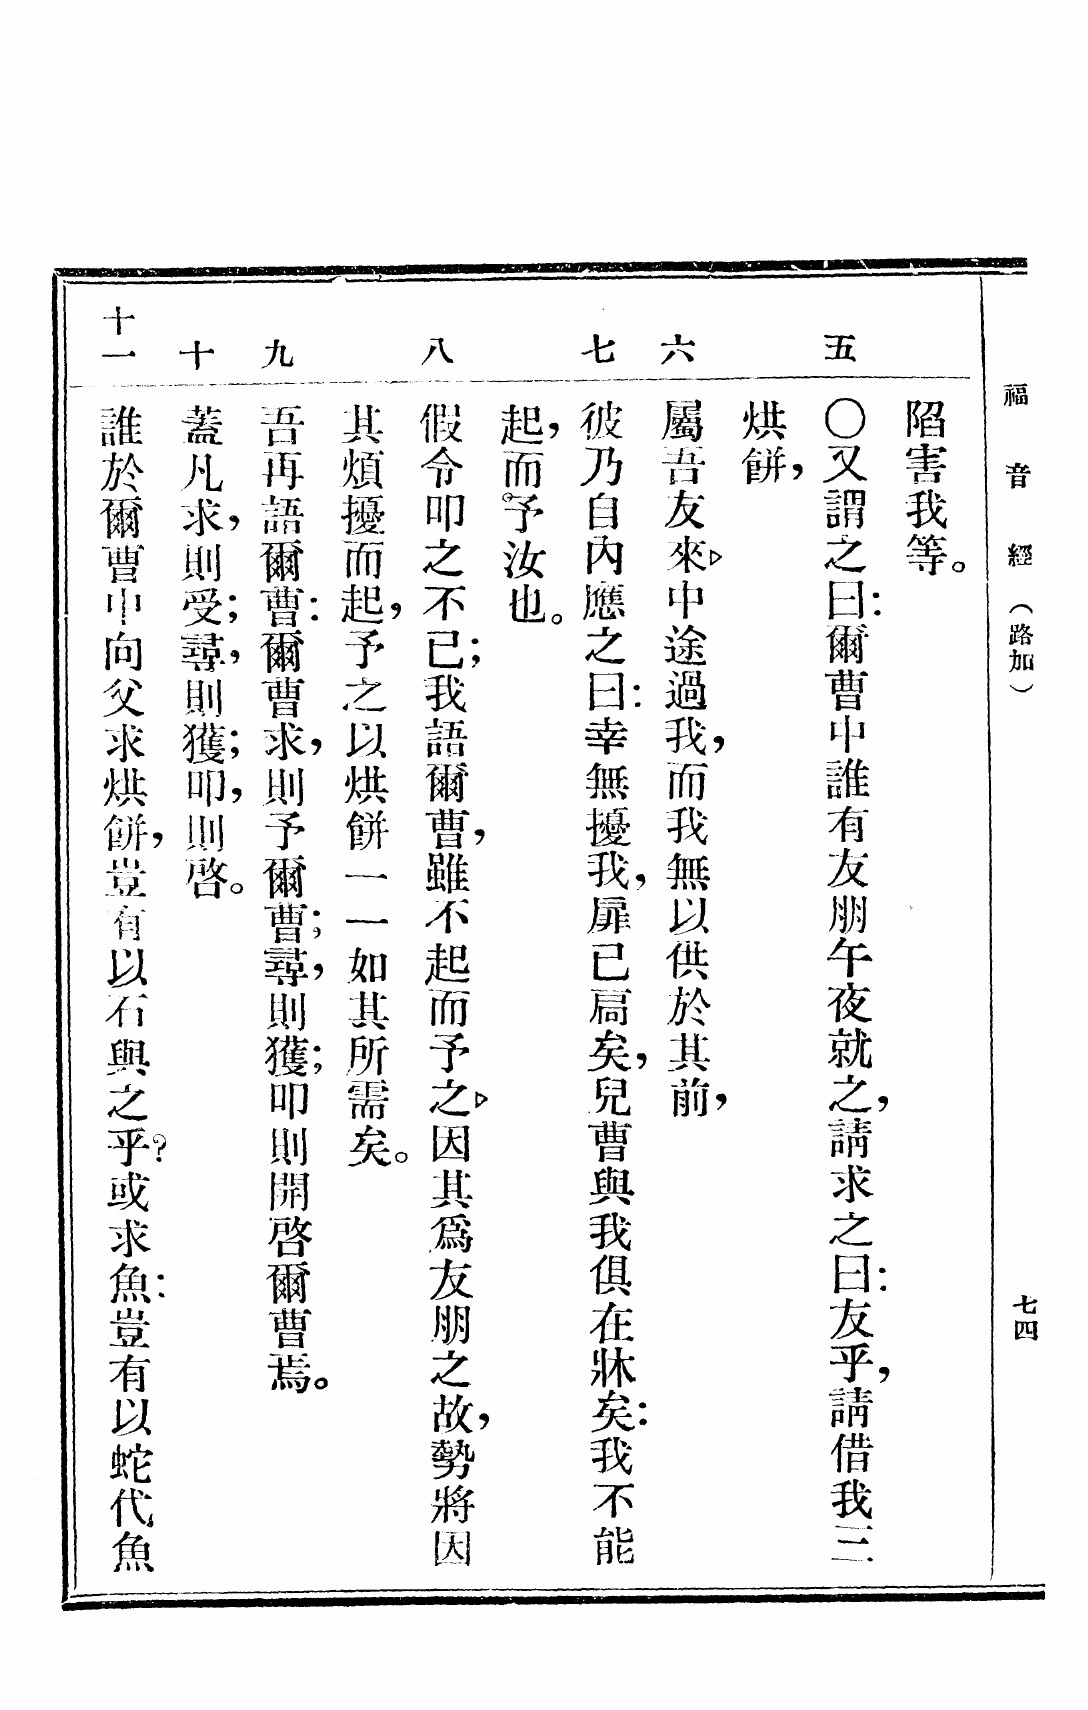 福音經（路加） 七四
陷害我等。
五 〇又謂之曰：爾曹中誰有友朋午夜就之，請求之曰：友乎，請借我三
烘餅，
六 屬吾友來▷中途過我，而我無以供於其前，
七 彼乃自內應之曰：幸無擾我，扉已扃矣，兒曹與我俱在牀矣：我不能
起，而予汝也。
八 假令叩之不已；我語爾曹，雖不起而予之▷因其爲友朋之故，勢將因
其煩擾而起，予之以烘餅一一如其所需矣。
九 吾再語爾曹：爾曹求，則予爾曹；尋，則獲；叩則開啓爾曹焉。
十 蓋凡求，則受；尋，則獲；叩，則啓。
十一 誰於爾曹中向父求烘餅，豈有以石與之乎？或求魚：豈有以蛇代魚